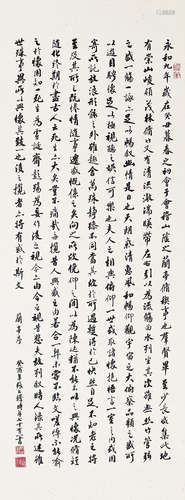 永和九年歲在癸丑暮春之初會于會稽山陰之蘭亭脩禊事也群賢畢至少長咸集此地
有崇山峻領茂林脩竹又有清流激湍暎帶左右引以為流觴曲水列坐其次雖無絲竹管弦
之盛一觴一詠亦足以暢敘幽情是日也天朗氣清惠風和暢仰觀宇宙之大俯察品類之盛所
以遊目騁懷足以極視聽之娛信可樂也夫人之相與俯仰一世或取諸懷抱悟言一室之內或因
寄所託放浪形骸之外雖趣舍萬殊靜躁不同當其欣於所遇暫得於己快然自足不知老之將
至及其所之既惓情隨事遷感慨係之矣向之所欣俛仰之間以為陳迹猶不能不以之興懷況脩短
隨化終期於盡古人云死生亦大矣豈不痛哉每攬昔人興感之由若合一契未嘗不臨文嗟悼不能喻
之於懷固知一死生為虛誕齊彭殤為妄作後之視今亦由今之視昔悲夫故列敘時人錄其所述雖
世殊事異所以興懷其致一也後之攬者亦將有感於斯文
蘭亭序